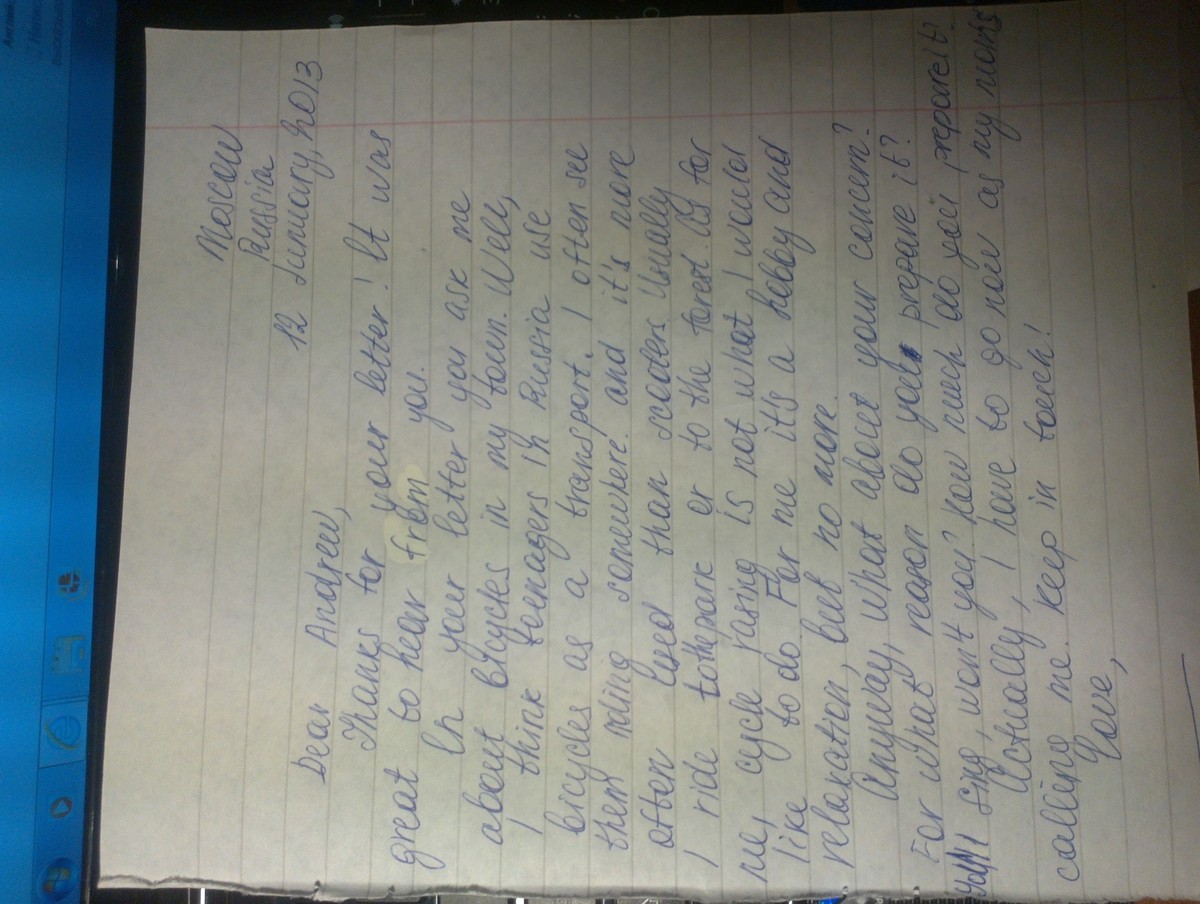 Moscow
Russia
12 January, 2013
Dear Andrew,
Thanks for your letter! It was
great to hear from you.
In your letter you ask me
about bicycles in my town. Well,
I think teenagers in Russia use
bicycles as a transport. I often see
them riding somewhere and it's more
often used than scooters. Usually
I ride to the park or to the forest. As for
me, cycle racing is not what I would
like to do. For me it's a hobby and
relaxation, but no more.
Anyway, what about your concern?
For what reason do you prepare it?
You'll sing, won't you? How much do you prepare it?
Actually, I have to go now as my mom's
calling me. Keep in touch!
Love,